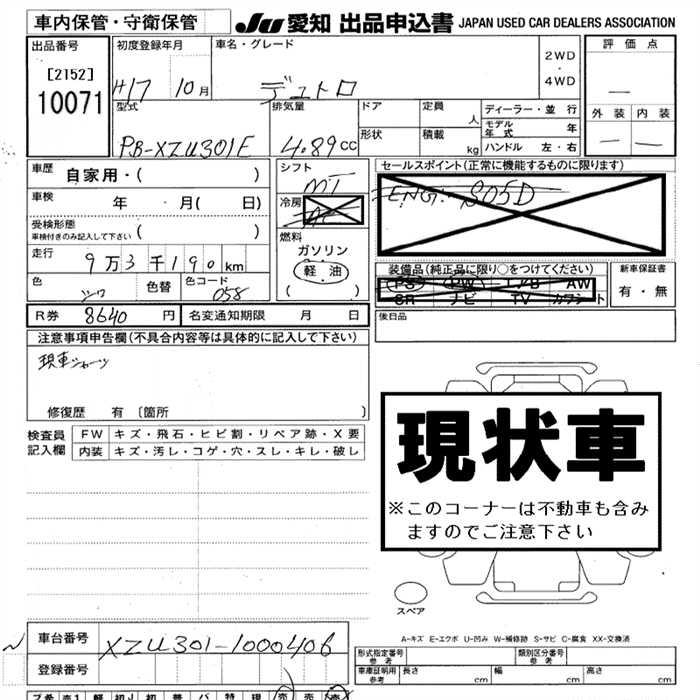 車内保管・守衛保管
JU 愛知 出品申込書 JAPAN USED CAR DEALERS ASSOCIATION
出品番号
[2152]
10071
初度登録年月
H17 10月
車名・グレード
デュトロ
2WD
・
4WD
評価点
—
外装 内装
— —
型式
PB-XZU301E
排気量
4.89CC
ドア
形状
定員
人
積載
kg
ディーラー・並 行
モデル年式 年
ハンドル 左・右
車歴
自家用・( )
車検
年 月( 日)
受検形態
車検付きのみ記入して下さい
( )
走行
9万3千190km
色
シロ
色替
色コード
058
シフト
MT
冷房
AC
燃料
ガソリン
軽油
( )
セールスポイント(正常に機能するものに限ります)
ENG. S05D
装備品(純正品に限り○をつけてください)
PS PW エアB AW
SR ナビ TV カワシート
新車保証書
有・無
R券 8640 円
名変通知期限 月 日
後日品
注意事項申告欄(不具合内容等は具体的に記入して下さい)
現車
修復歴 有 〔箇所 〕
検査員記入欄
FW キズ・飛石・ヒビ割・リペア跡・X要
内装 キズ・汚レ・コゲ・穴・スレ・キレ・破レ
現状車
※このコーナーは不動車も含み
ますのでご注意下さい
スペア
A-キズ E-エクボ U-凹み W-補修跡 S-サビ C-腐食 XX-交換済
車台番号
XZU301-1000406
登録番号
形式指定番号
参考
類別区分番号
参考
車庫証明用
参考
長さ cm
幅 cm
高さ cm